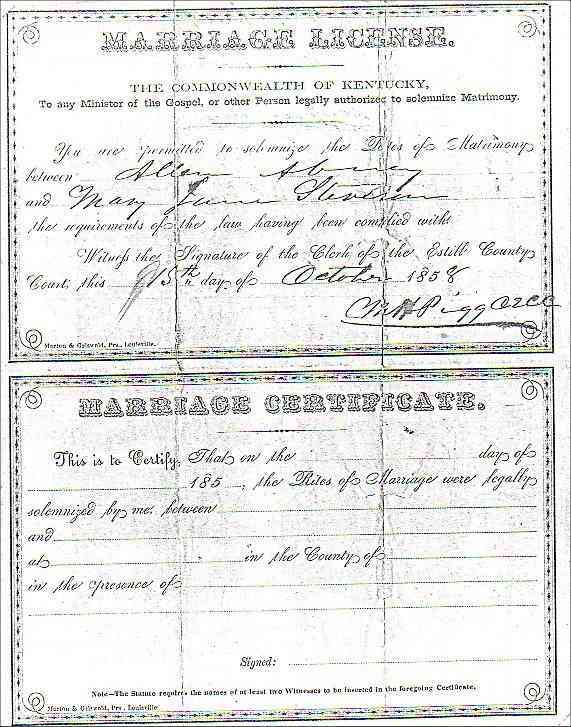 MARRIAGE LICENSE.
THE COMMONWEALTH OF KENTUCKY,
To any Minister of the Gospel, or other Person legally authorized to solemnize Matrimony.
You are permitted to solemnize the Rites of Matrimony
between
and Mary
the requirements of the law having been complied with.
Witness the Signature of the Clerk of the Estill County
Court, this 15th day of October 1858
Morton & Griswold, Prs., Louisville.
MARRIAGE CERTIFICATE.
This is to Certify, That on the day of
185 , the Rites of Marriage were legally
solemnized by me, between
and
at in the County of
in the presence of
Signed:
Note—The Statute requires the names of at least two Witnesses to be inserted in the foregoing Certificate.
Morton & Griswold, Prs., Louisville